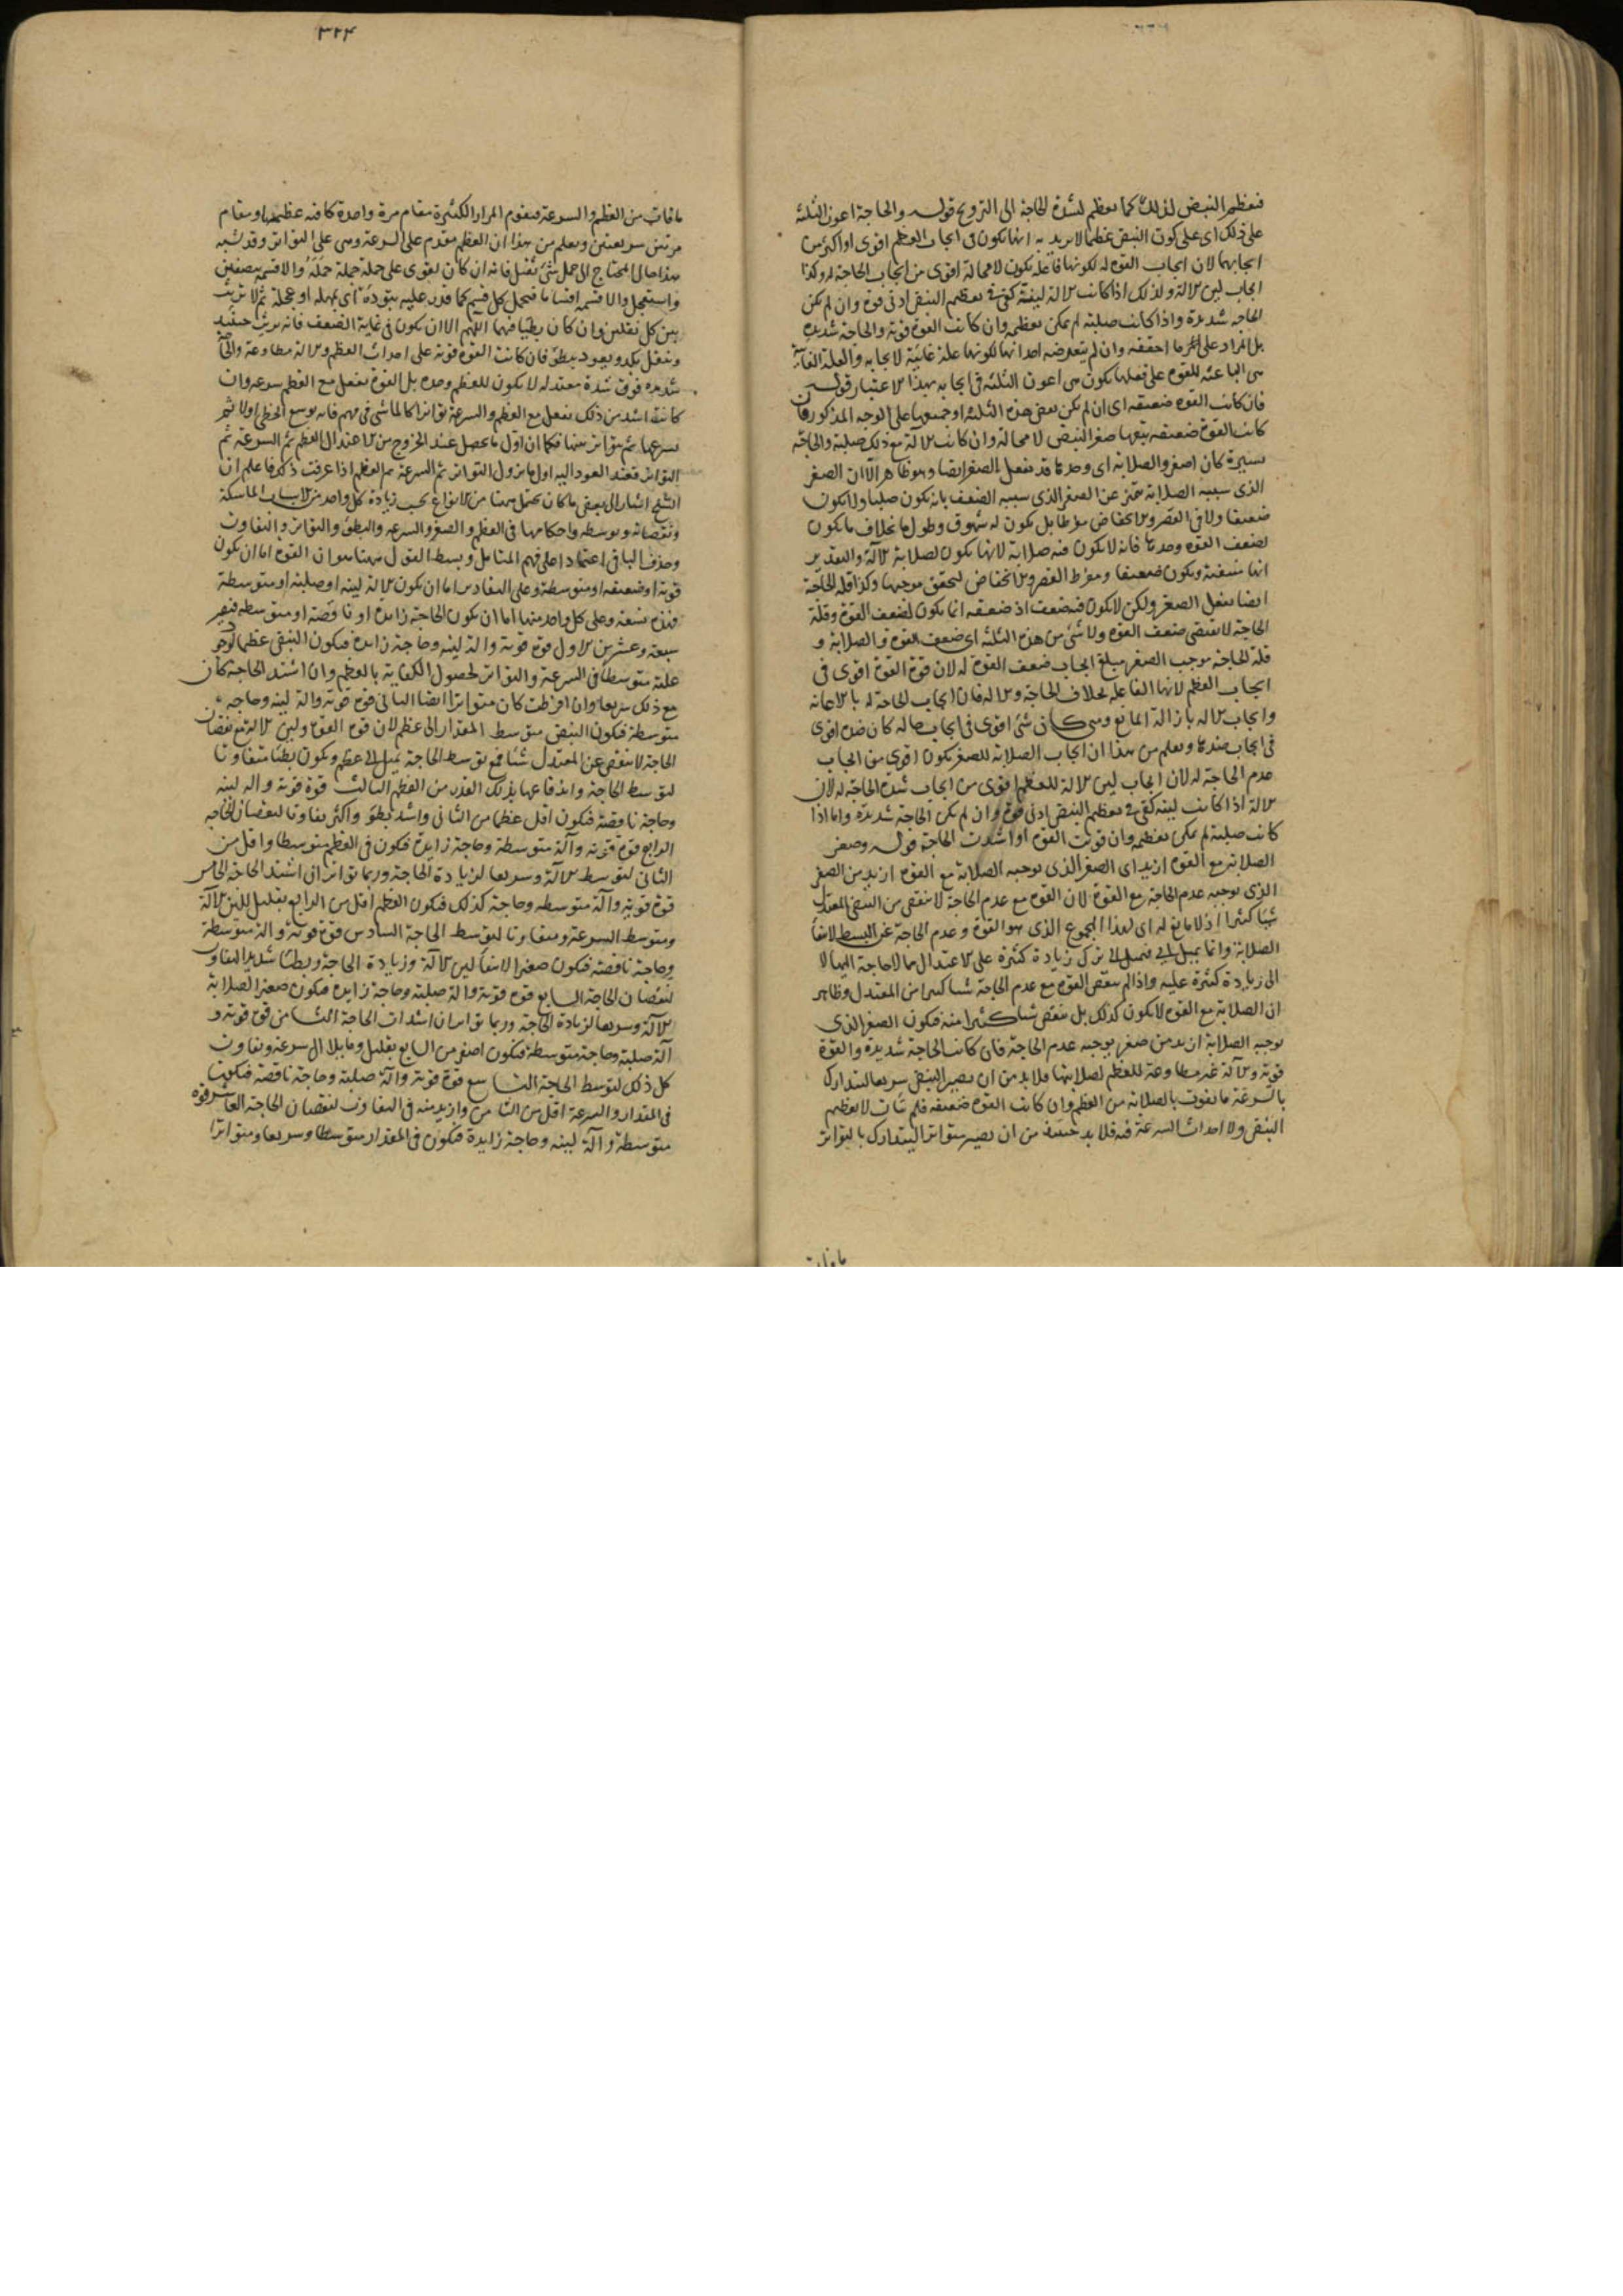 فيعظم النبض لذلك كما يعظم لشدة الحاجة الى الترويح قوله والحاجة اعون الثلثة
على ذلك اى على كون النبض عظيما لا يريد به انها يكون فى ايجاب العظم اقوى او اكثر من
ايجابهما لان ايجاب القوة له لكونها فاعله يكون لا محالة اقوى من ايجاب الحاجة له وكذا
ايجاب لين الالة ولذلك اذا كانت الالة لينة كفى فى تعظيم النبض ادنى قوة وان لم يكن
الحاجة شديدة واذا كانت صلبة لم يمكن تعظيمه وان كانت القوة قوية والحاجة شديدة
بل المراد على ما احققه وان لم يتعرضه احد انها لكونها علة غائية لايجابه والعلة الغائية
هى الباعثة للقوة على فعلها يكون هى اعون الثلثة فى ايجابه بهذا الاعتبار قوله
فان كانت القوة ضعيفه اى ان لم يكن بعض هذه الثلثة او جميعها على الوجه المذكور فان
كانت القوة ضعيفه يتبعها صغر النبض لا محالة وان كانت الالة مع ذلك صلبة والحاجة
يسيرة كان اصغر والصلابة اى وحدها قد تفعل الصغر ايضا وهو ظاهر الا ان الصغر
الذى سببه الصلابة يتميز عن الصغر الذى سببه الضعف بانه يكون صلبا ولا يكون
ضعيفا ولا فى القصر والانخفاض مفرطا بل يكون له شهوق وطول ما بخلاف ما يكون
لضعف القوة وحدها فانه لا يكون فيه صلابة لانها يكون لصلابة الالة والتقدير
انها منتفية ويكون ضعيفا ومفرط القصر والانخفاض لتحقق موجبها وكذا قلة الحاجة
ايضا تفعل الصغر ولكن لا يكون فيه ضعف اذ ضعفه انما يكون لضعف القوة وقلة
الحاجة لا تقتضى ضعف القوة ولا شئ من هذه الثلثة اى ضعف القوة والصلابة و
قلة الحاجة موجب الصغر مبلغ ايجاب ضعف القوة له لان قوة القوة اقوى فى
ايجاب العظم لانها الفاعلة بخلاف الحاجة والالة فان ايجاب الحاجة له بالاعانة
وايجاب الالة بازالة المانع ومتى كان شئ اقوى فى ايجاب حالة كان ضده اقوى
فى ايجاب ضدها ويعلم من هذا ان ايجاب الصلابة للصغر يكون اقوى من ايجاب
عدم الحاجة له لان ايجاب لين الالة للعظم اقوى من ايجاب شدة الحاجة له لان
الالة اذا كانت لينة كفى فى تعظيم النبض ادنى قوة وان لم يكن الحاجة شديدة واما اذا
كانت صلبة لم يمكن تعظيمه وان قويت القوة او اشتدت الحاجة قوله وصغر
الصلابة مع القوة ازيد اى الصغر الذى توجبه الصلابة مع القوة ازيد من الصغر
الذى يوجبه عدم الحاجة مع القوة لان القوة مع عدم الحاجة لا ينقص من النبض المعتدل
شيئا كثيرا اذ لا مانع له اى لهذا المجموع الذى هو القوة وعدم الحاجة عن البسط لانتفاء
الصلابة وانما يميل الى ترك زيادة كثيرة على الاعتدال مما لا حاجة اليها لا
الى زيادة كثيرة عليه واذا لم ينقص القوة مع عدم الحاجة شيئا كثيرا من المعتدل وظاهر
ان الصلابة مع القوة لا يكون كذلك بل ينقص شيئا كثيرا منه فيكون الصغر الذى
توجبه الصلابة ازيد من صغر يوجبه عدم الحاجة فان كانت الحاجة شديدة والقوة
قوية والالة غير مطاوعة للعظم لصلابتها فلا بد من ان يصير النبض سريعا ليتدارك
بالسرعة ما يفوت بالصلابة من العظم وان كانت القوة ضعيفه فلم يتأت لا تعظيم
النبض ولا احداث السرعة فيه فلا بد حينئذ من ان يصير متواترا ليتدارك بالتواتر
٣٢۴
ما فات من العظم والسرعة فيقوم المرار الكثيرة مقام مرة واحدة كافية عظيمة او مقام
مرتين سريعتين ويعلم من هذا ان العظم مقدم على السرعة وهى على التواتر وقد شبه
هذا حال المحتاج الى حمل شئ ثقيل فانه ان كان يقوى على حمله جملة حمله والا قسمه بنصفين
واستعجل والا قسمه اقساما فيحمل كل قسم كما قدر عليه بتؤدة اى بمهلة او عجلة ثم لا يريث
بين كل نقلتين وان كان بطيئا فيهما اللهم الا ان يكون فى غاية الضعف فانه يريث حينئذ
وينقل بكد ويعود ببطؤ فان كانت القوة قوية على احداث العظم والالة مطاوعة والحاجة
شديدة فوق شدة معتدلة لا يكون للعظم وحده بل القوة تفعل مع العظم سرعة وان
كانت اشد من ذلك تفعل مع العظم والسرعة تواترا كالماشى فى مهم فانه يوسع الخطى اولا ثم
يسرعها ثم يواتر بينها فكما ان اول ما يحصل عند الخروج من الاعتدال العظم ثم السرعة ثم
التواتر فعند العود اليه اول ما يزول التواتر ثم السرعة ثم العظم اذا عرفت ذلك فاعلم ان
الشيخ اشار الى بعض ما كان يحتمل ههنا من الانواع بحسب زيادة كل واحد من الاسباب الماسكة
ونقصانه وتوسطه واحكامها فى العظم والصغر والسرعة والبطؤ والتواتر والتفاوت
وحذف الباقى اعتمادا على فهم المتأمل وبسط القول ههنا هو ان القوة اما ان يكون
قوية او ضعيفه او متوسطة وعلى التقادير اما ان يكون الالة لينة او صلبة او متوسطة
فهذه تسعة وعلى كل واحد منها اما ان يكون الحاجة زايدة او ناقصة او متوسطه فيصير
سبعة وعشرين الاول قوة قوية والة لينة وحاجة زايدة فيكون النبض عظيما لوجود
علته متوسطا فى السرعة والتواتر لحصول الكفاية بالعظم وان اشتد الحاجة كان
مع ذلك سريعا وان افرطت كان متواترا ايضا الثانى قوة قوية والة لينة وحاجة
متوسطة فيكون النبض متوسط المقدار الى عظم لان قوة القوة ولين الالة مع نقصان
الحاجة لا ينقص عن المعتدل شيئا فمع توسط الحاجة يميل الى عظم ويكون بطيئا متفاوتا
لتوسط الحاجة واندفاعها بذلك القدر من العظم الثالث قوة قوية والة لينة
وحاجة ناقصة فيكون اقل عظما من الثانى واشد بطؤ واكثر تفاوتا لنقصان الحاجة
الرابع قوة قوية وآلة متوسطة وحاجة زايدة فيكون فى العظم متوسطا واقل من
الثانى لتوسط الالة وسريعا لزيادة الحاجة وربما تواتر ان اشتد الحاجة الخامس
قوة قوية وآلة متوسطه وحاجة كذلك فيكون العظم اقل من الرابع بقليل للين الالة
ومتوسط السرعة ومتفاوتا لتوسط الحاجة السادس قوة قوية والة متوسطة
وحاجة ناقصة فيكون صغيرا لانتفاء لين الالة وزيادة الحاجة وبطيئا شديد التفاوت
لنقصان الحاجة السابع قوة قوية والة صلبة وحاجة زايدة فيكون صغيرا لصلابة
الالة وسريعا لزيادة الحاجة وربما تواتر ان اشتدت الحاجة الثامن قوة قوية و
آلة صلبة وحاجة متوسطة فيكون اصغر من السابع بقليل ومايلا الى سرعة وتفاوت
كل ذلك لتوسط الحاجة التاسع قوة قوية وآلة صلبة وحاجة ناقصة فيكون
فى المقدار والسرعة اقل من الثامن وازيد منه فى التفاوت لنقصان الحاجة العاشر قوة
متوسطة وآلة لينة وحاجة زايدة فيكون فى المقدار متوسطا وسريعا ومتواترا